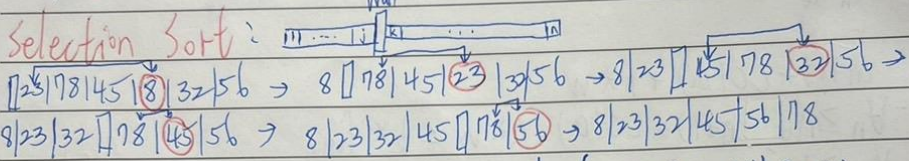 Selection Sort: 1 .... j k ... n
[] 23|78|45|8|32|56 → 8 [] 78|45|23|32|56 → 8|23 [] 45|78|32|56 →
8|23|32 [] 78|45|56 → 8|23|32|45 [] 78|56 → 8|23|32|45|56|78